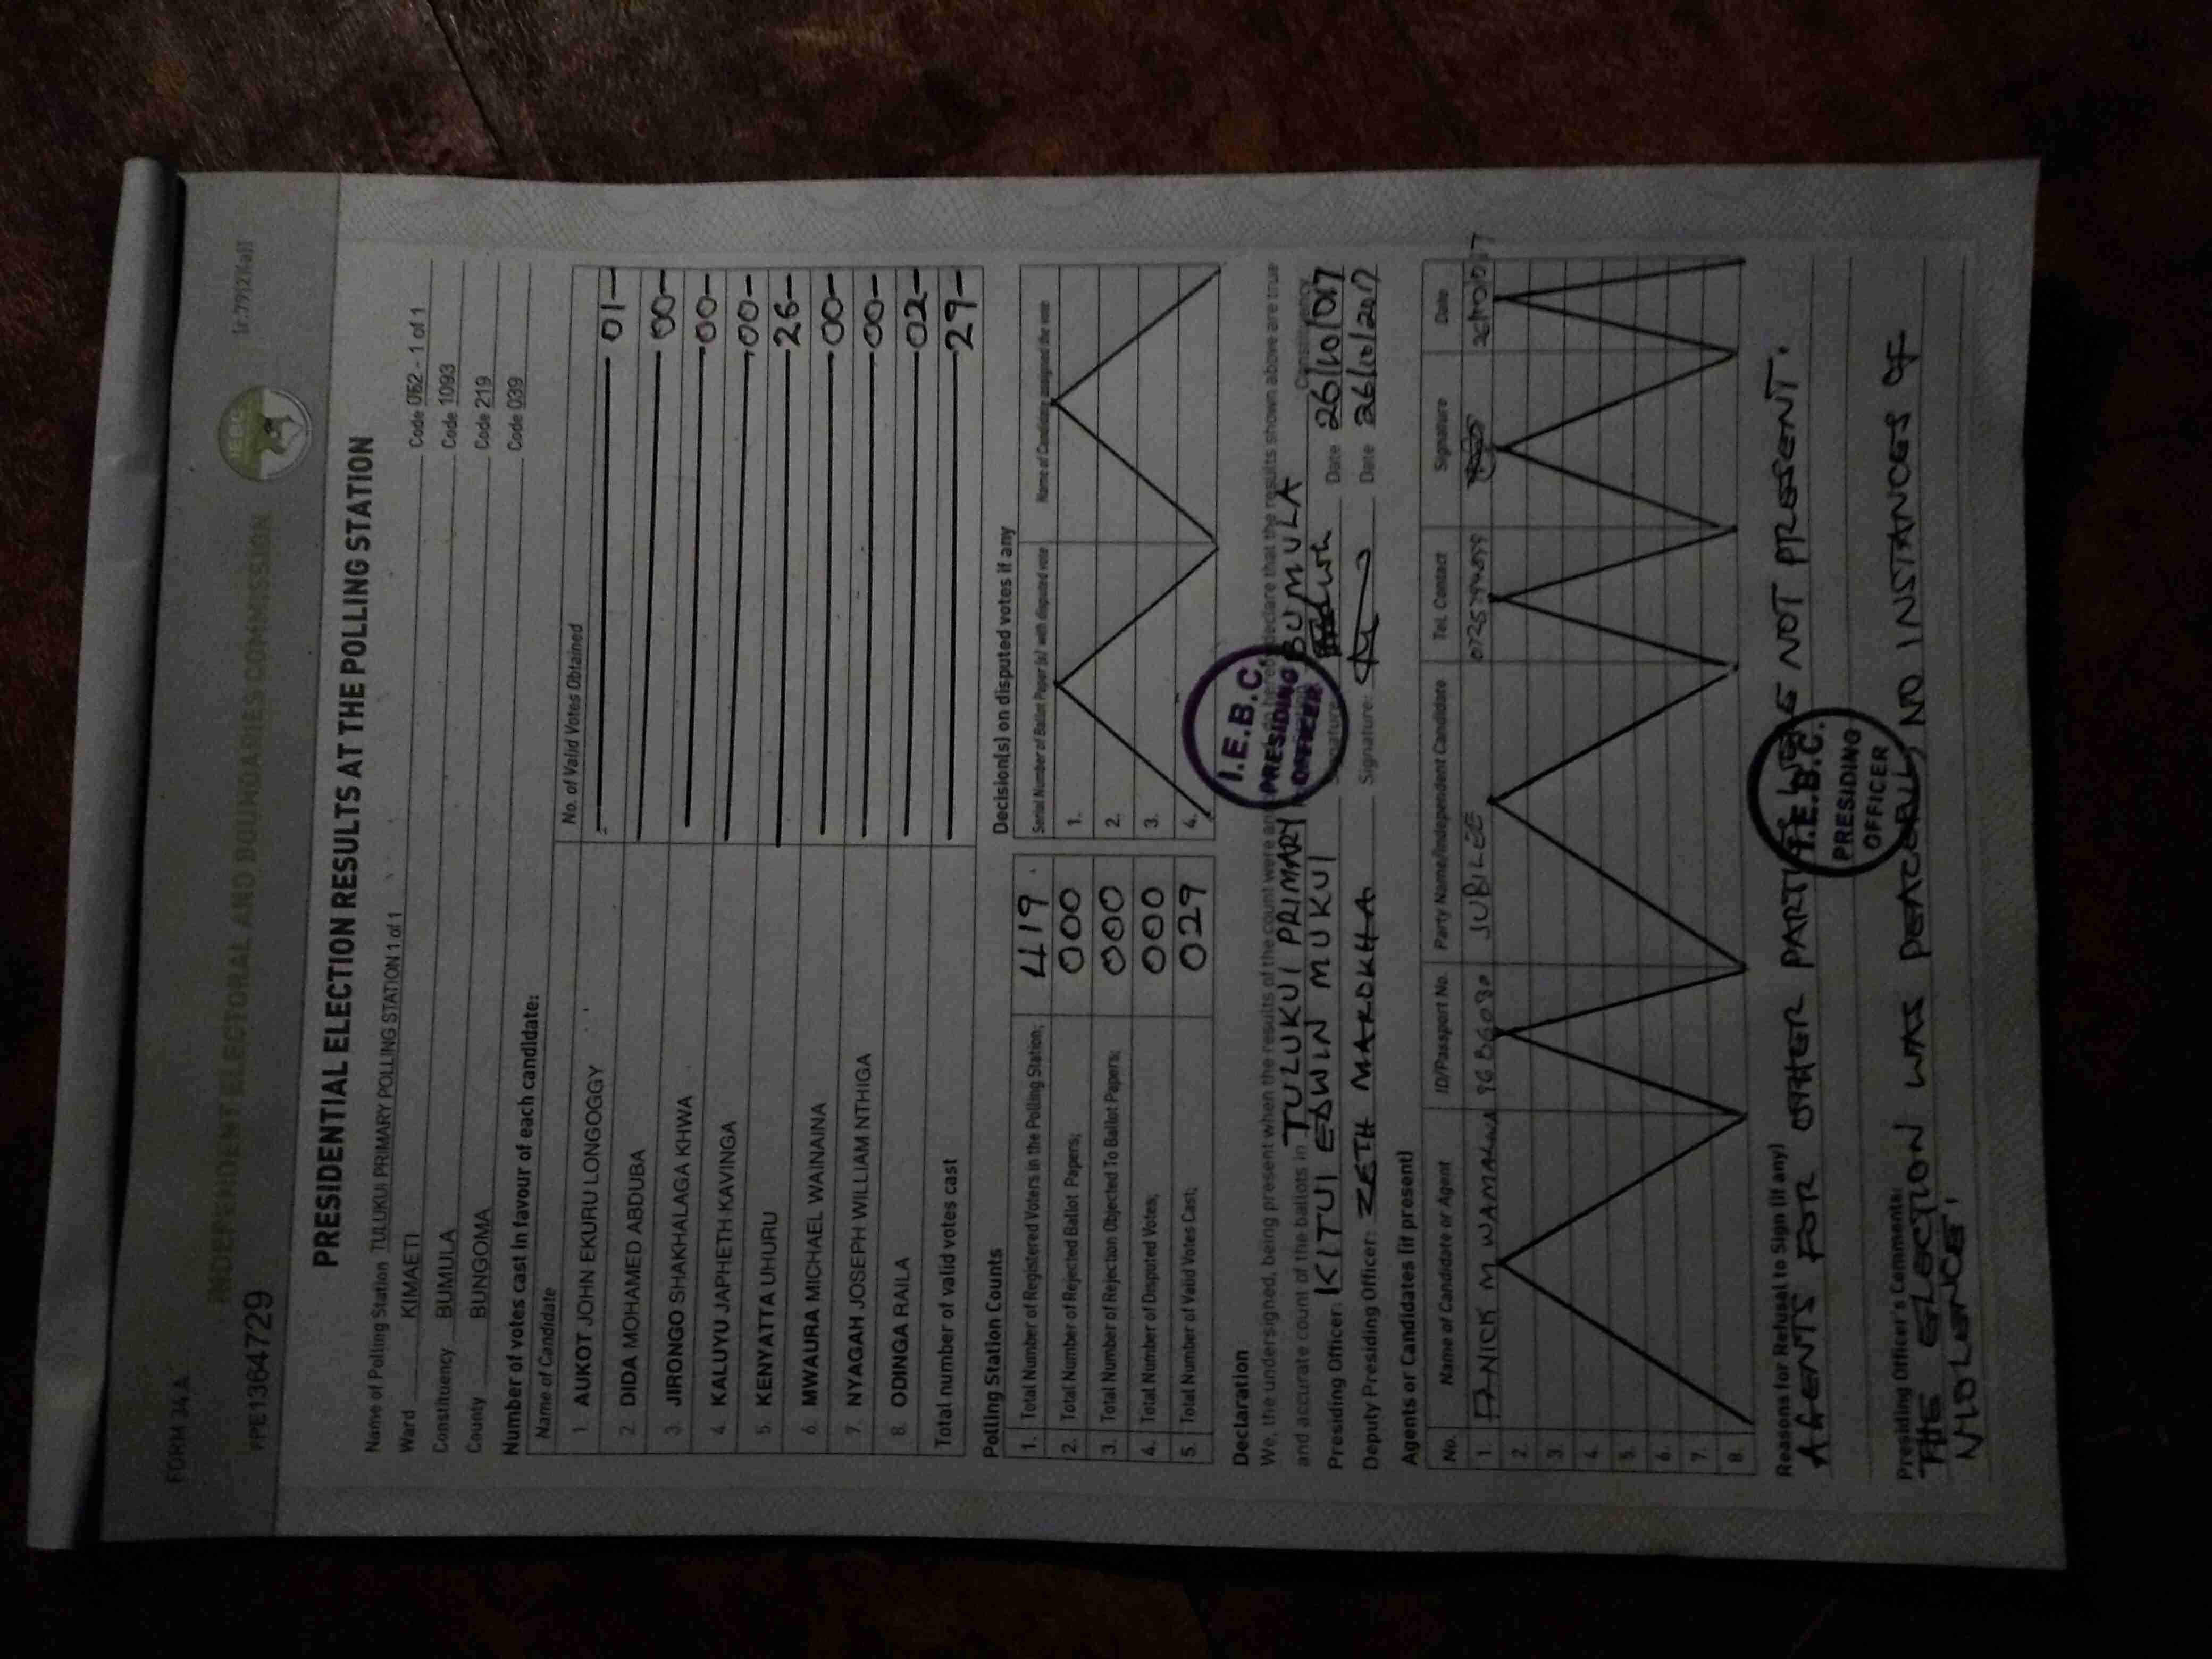 FORM 34A
INDEPENDENT ELECTORAL AND BOUNDARIES COMMISSION
IEBC
PPE1364729
PRESIDENTIAL ELECTION RESULTS AT THE POLLING STATION
Name of Polling Station TULUKUI PRIMARY POLLING STATION 1 of 1 Code 062 - 1 of 1
Ward KIMAETI Code 1093
Constituency BUMULA Code 219
County BUNGOMA Code 039
Number of votes cast in favour of each candidate:
Name of Candidate No. of Valid Votes Obtained
1 AUKOT JOHN EKURU LONGOGGY 01
2. DIDA MOHAMED ABDUBA 00
3. JIRONGO SHAKHALAGA KHWA 00
4. KALUYU JAPHETH KAVINGA 00
5. KENYATTA UHURU 26
6. MWAURA MICHAEL WAINAINA 00
7. NYAGAH JOSEPH WILLIAM NTHIGA 00
8. ODINGA RAILA 02
Total number of valid votes cast 29
Polling Station Counts
1. Total Number of Registered Voters in the Polling Station; 419
2. Total Number of Rejected Ballot Papers; 000
3. Total Number of Rejection Objected To Ballot Papers; 000
4. Total Number of Disputed Votes; 000
5. Total Number of Valid Votes Cast; 029
Decision(s) on disputed votes if any
Serial Number of Ballot Paper (s) with disputed vote Name of Candidate assigned the vote
1.
2.
3.
4.
Declaration
We, the undersigned, being present when the results of the count were declare that the results shown above are true
and accurate count of the ballots in TULUKUI PRIMARY BUMULA Constituency
Presiding Officer: KITUI EDWIN MUKUI Signature Date 26/10/017
Deputy Presiding Officer: ZETH MAROKHA Signature: Date 26/10/2017
I.E.B.C.
PRESIDING
OFFICER
Agents or Candidates (if present)
No. Name of Candidate or Agent ID/Passport No. Party Name/Independent Candidate Tel. Contact Signature Date
1. M WAMALWA JUBILEE
2.
3.
4.
5.
6.
7.
8.
Reasons for Refusal to Sign (if any)
AGENTS FOR OTHER NOT PRESENT.
I.E.B.C.
PRESIDING
OFFICER
Presiding Officer's Comments:
THE ELECTION WAS NO INSTANCES OF
VIOLENCE.